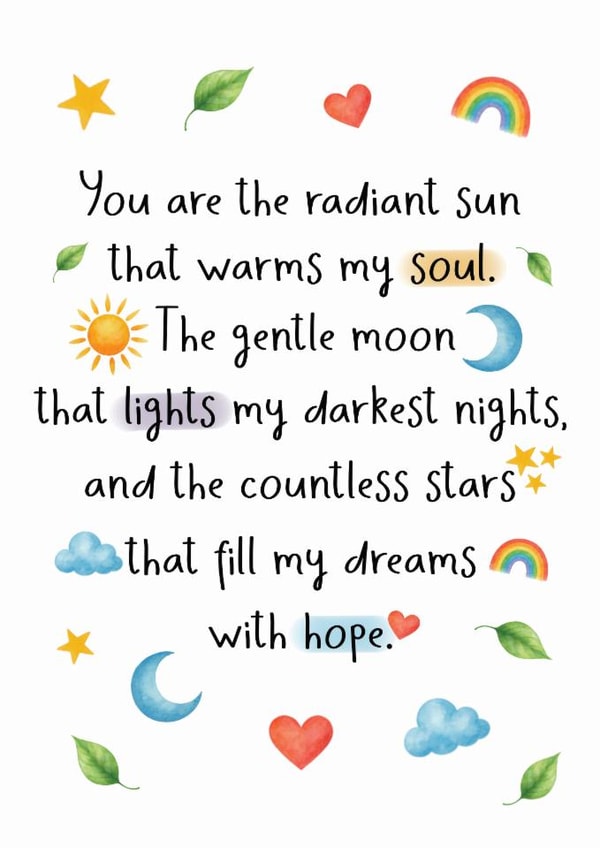 You are the radiant sun
that warms my soul.
The gentle moon
that lights my darkest nights,
and the countless stars
that fill my dreams
with hope.